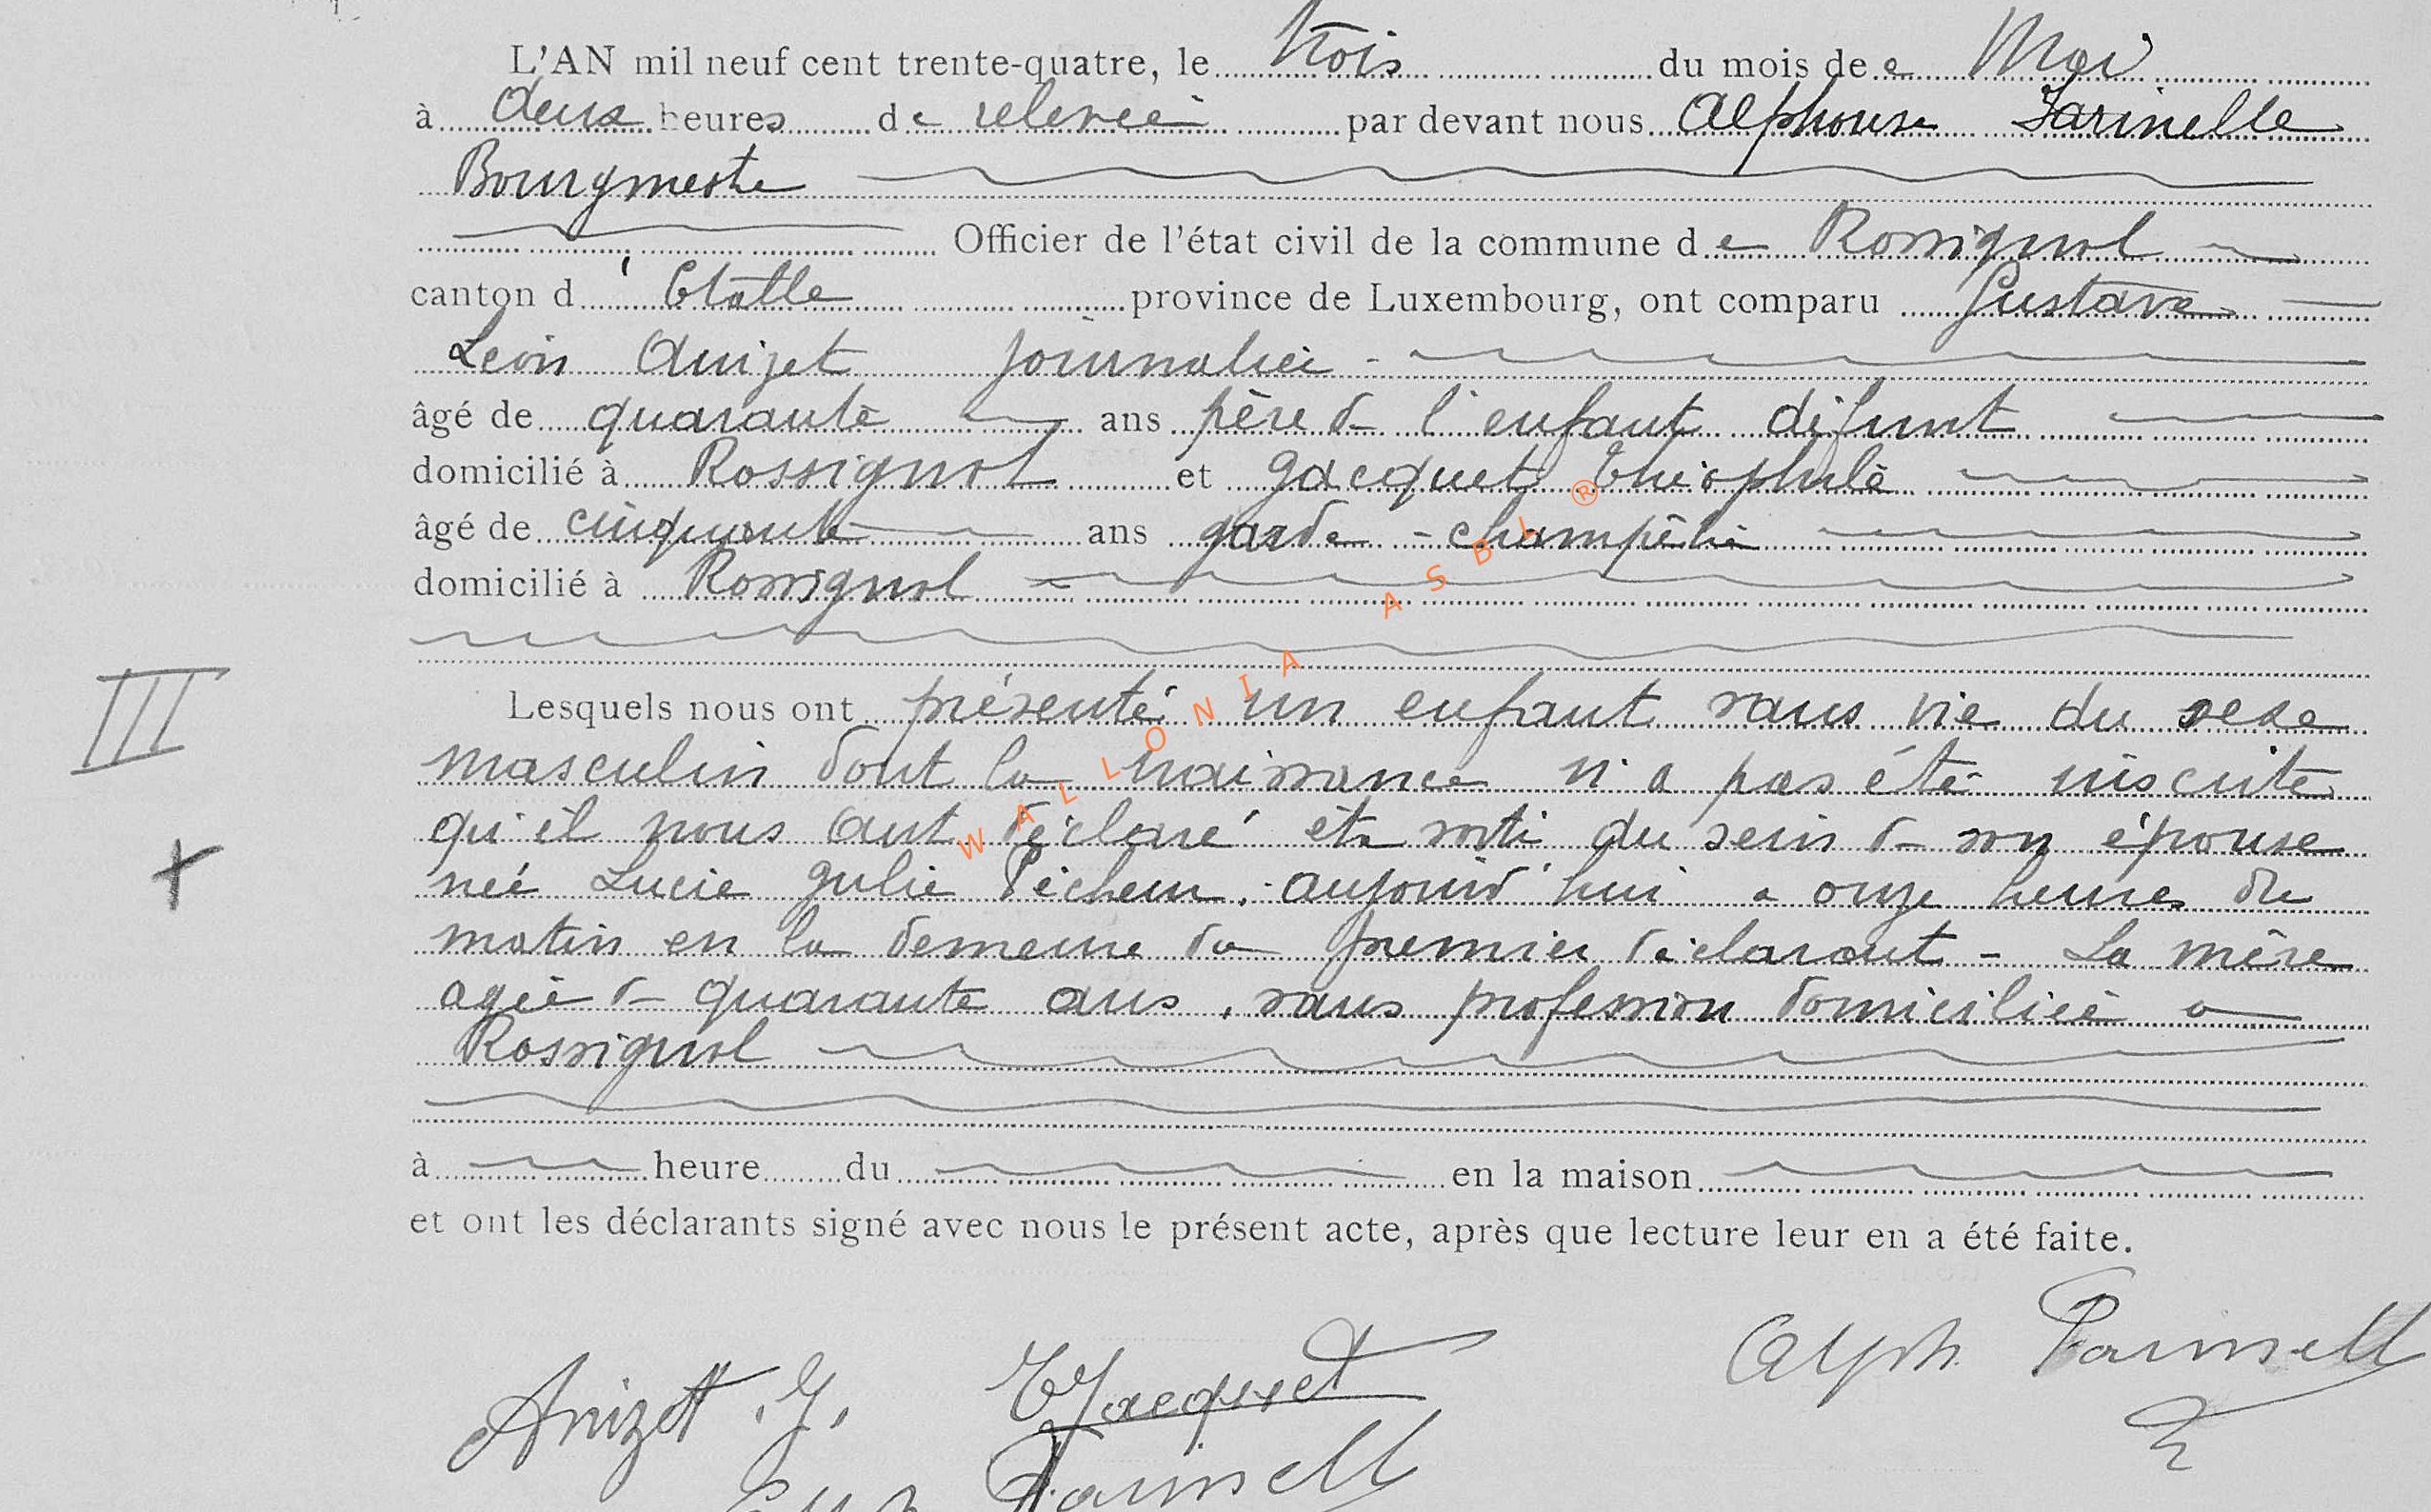 L'AN mil neuf cent trente-quatre, le trois du mois de Mai
à deux heures de relevée par devant nous Alphonse Farinelle
Bourgmestre
Officier de l'état civil de la commune de Rossignol
canton d'Etalle province de Luxembourg, ont comparu Gustave
Léon Anizet journalier
âgé de quarante ans père de l'enfant défunt
domicilié à Rossignol et Jacquet Théophile
âgé de cinquante ans garde-champêtre
domicilié à Rossignol
III
Lesquels nous ont présenté un enfant sans vie du sexe
masculin dont la naissance n'a pas été inscrite
qu'il nous ont déclaré être sorti du sein de son épouse
née Lucie Julie Pécheur. aujourd'hui a onze heures du
matin en la demeure du premier déclarant - La mère
agée de quarante ans, sans profession domiciliée a
Rossignol
à heure du en la maison
et ont les déclarants signé avec nous le présent acte, après que lecture leur en a été faite.
Alph Farinelle
Anizet .G. T Jacquet
Alph Farinelle
WALLONIA ASBL ®